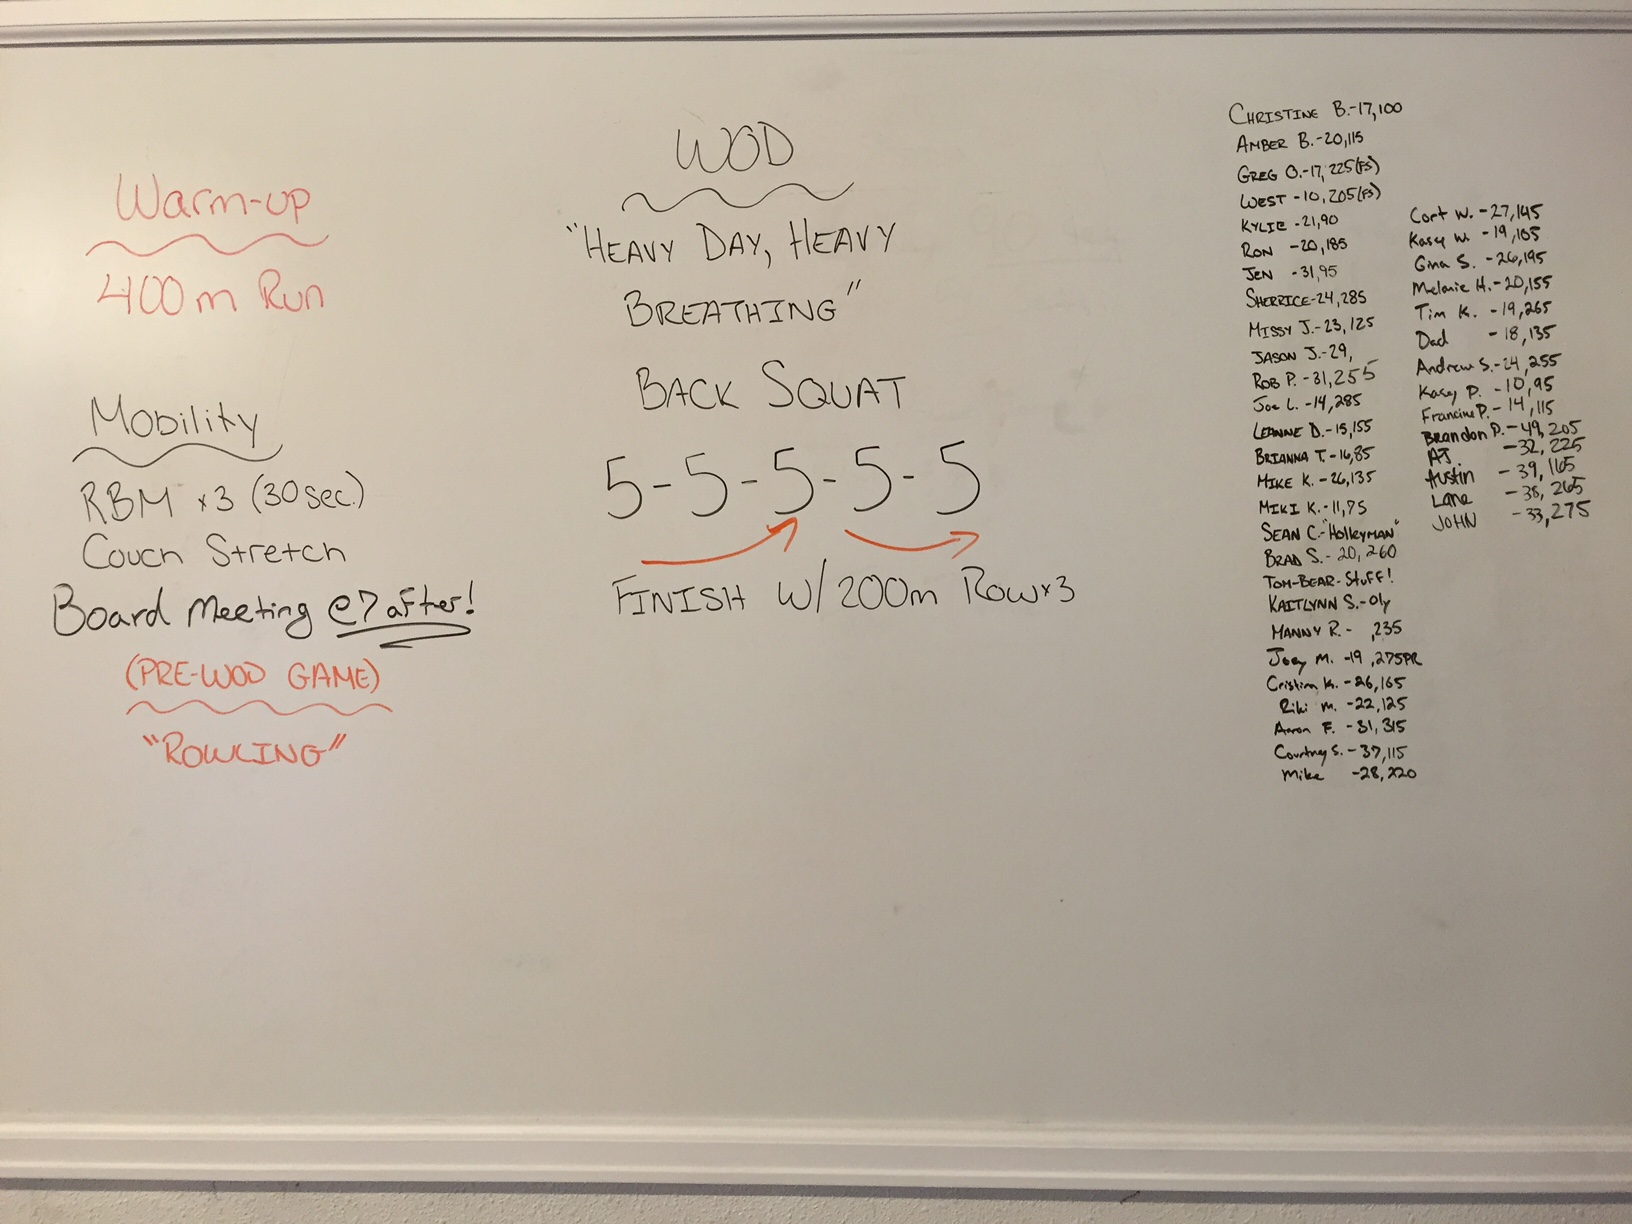 Warm-up
400m Run
Mobility
RBM x3 (30sec.)
Couch Stretch
Board Meeting @7 after!
(PRE-WOD GAME)
"ROWLING"
WOD
"HEAVY DAY, HEAVY
BREATHING"
BACK SQUAT
5-5-5-5-5
FINISH W/200m Row x3
CHRISTINE B.-17,100
AMBER B.-20,115
GREG O.-17,225(FS)
WEST -10,205(FS)
KYLIE -21,90
RON -20,185
JEN -31,95
SHERRICE-24,285
MISSY J.-23,125
JASON J.-29,
ROB P.-31,255
Joe L.-14,285
LEANNE D.-15,155
BRIANNA T.-16,85
MIKE K.-26,135
MIKI K.-11,75
SEAN C.-"Holleyman"
BRAD S.-20,260
TOM-BEAR-STUFF!
KAITLYNN S.-Oly
MANNY R.- ,235
Joey M. -19,275PR
Cristina K. -26,165
Riki M. -22,125
Aaron F. -31,315
Courtney S. -37,115
Mike -28,220
Cort W. -27,145
Kasey W. -19,105
Gina S. -26,195
Melanie H. -20,155
Tim K. -19,265
Dad -18,135
Andrew S.-24,255
Kasey P. -10,95
Francine P.-14,115
Brandon P.-49,205
AJ. -32,225
Austin -39,165
Lane -38,265
JOHN -33,275